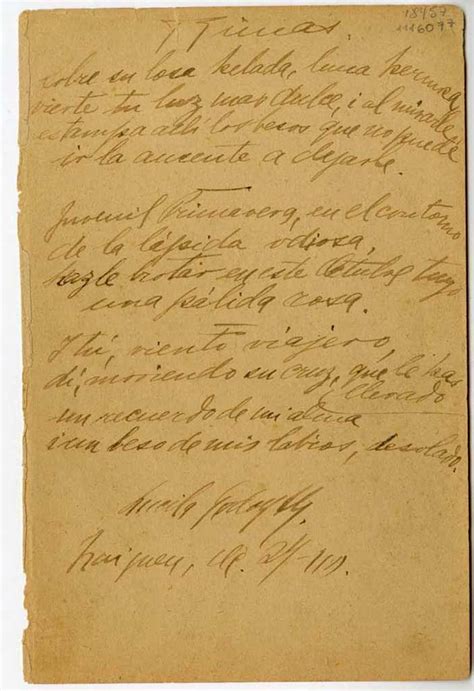 18457
1116077
Rimas.
sobre su losa helada, luna hermosa
vierte tu luz mas dulce, i al mirarle
estampa alli los besos que no puede
ir la ausente a dejarle.
Juvenil Primavera, en el contorno
de la lápida odiosa,
hazle brotar en este Octubre tuyo
una pálida rosa.
I tú, viento viajero,
di, moviendo su cruz, que le has
llevado
un recuerdo de mi alma
i un beso de mis labios, desolado.
Lucila Godoy A.
Traiguen, Oc. 24-910.